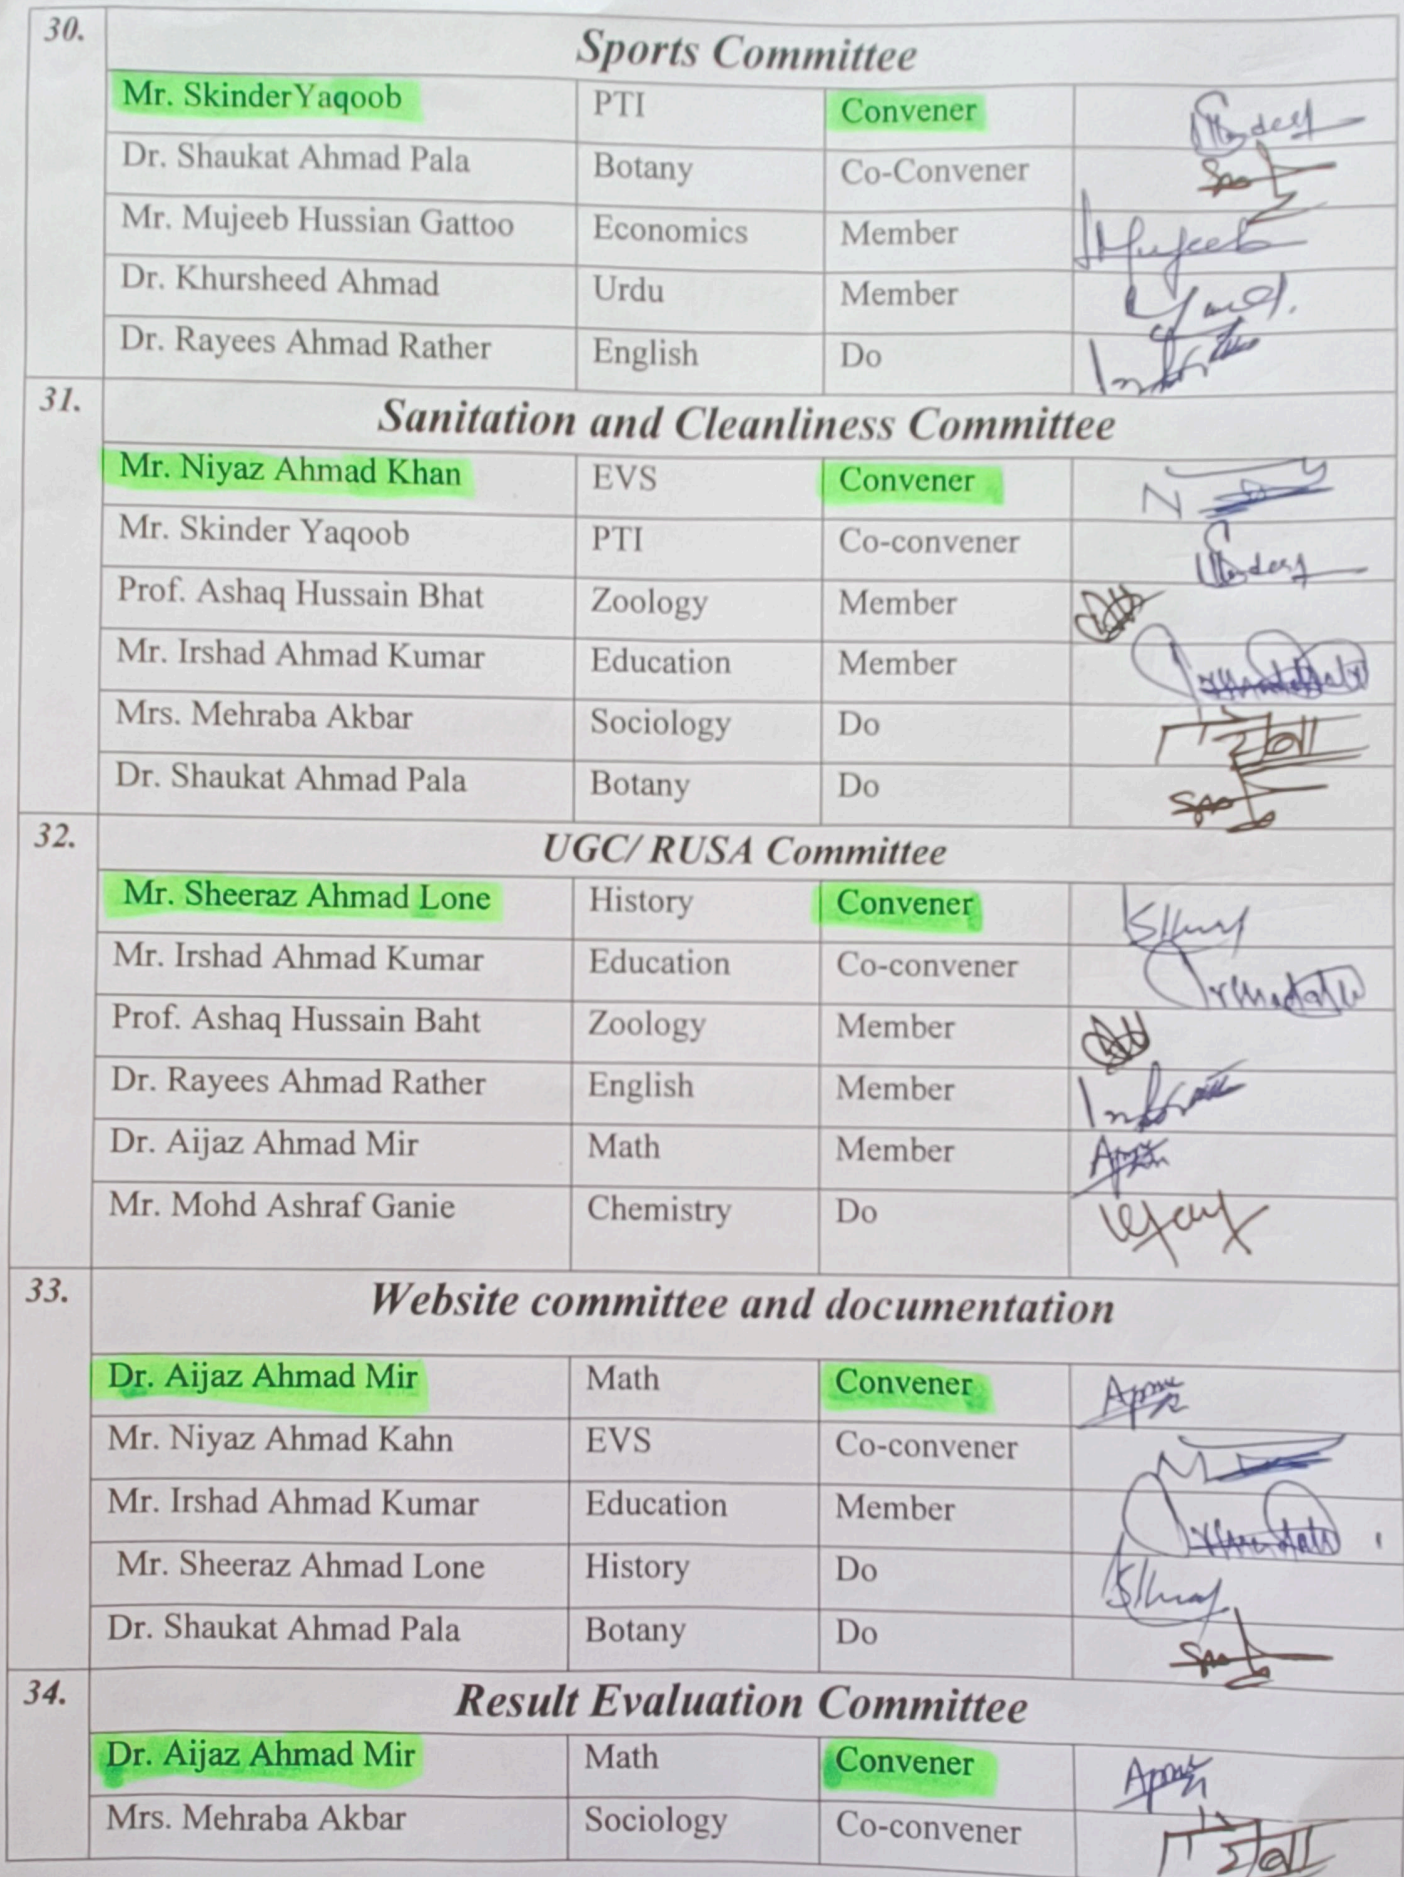 30.
Sports Committee
Mr. SkinderYaqoob PTI Convener
Dr. Shaukat Ahmad Pala Botany Co-Convener
Mr. Mujeeb Hussian Gattoo Economics Member Mujeeb
Dr. Khursheed Ahmad Urdu Member
Dr. Rayees Ahmad Rather English Do
31.
Sanitation and Cleanliness Committee
Mr. Niyaz Ahmad Khan EVS Convener
Mr. Skinder Yaqoob PTI Co-convener
Prof. Ashaq Hussain Bhat Zoology Member
Mr. Irshad Ahmad Kumar Education Member
Mrs. Mehraba Akbar Sociology Do
Dr. Shaukat Ahmad Pala Botany Do
32.
UGC/ RUSA Committee
Mr. Sheeraz Ahmad Lone History Convener
Mr. Irshad Ahmad Kumar Education Co-convener
Prof. Ashaq Hussain Baht Zoology Member
Dr. Rayees Ahmad Rather English Member
Dr. Aijaz Ahmad Mir Math Member
Mr. Mohd Ashraf Ganie Chemistry Do
33.
Website committee and documentation
Dr. Aijaz Ahmad Mir Math Convener
Mr. Niyaz Ahmad Kahn EVS Co-convener
Mr. Irshad Ahmad Kumar Education Member
Mr. Sheeraz Ahmad Lone History Do
Dr. Shaukat Ahmad Pala Botany Do
34.
Result Evaluation Committee
Dr. Aijaz Ahmad Mir Math Convener
Mrs. Mehraba Akbar Sociology Co-convener